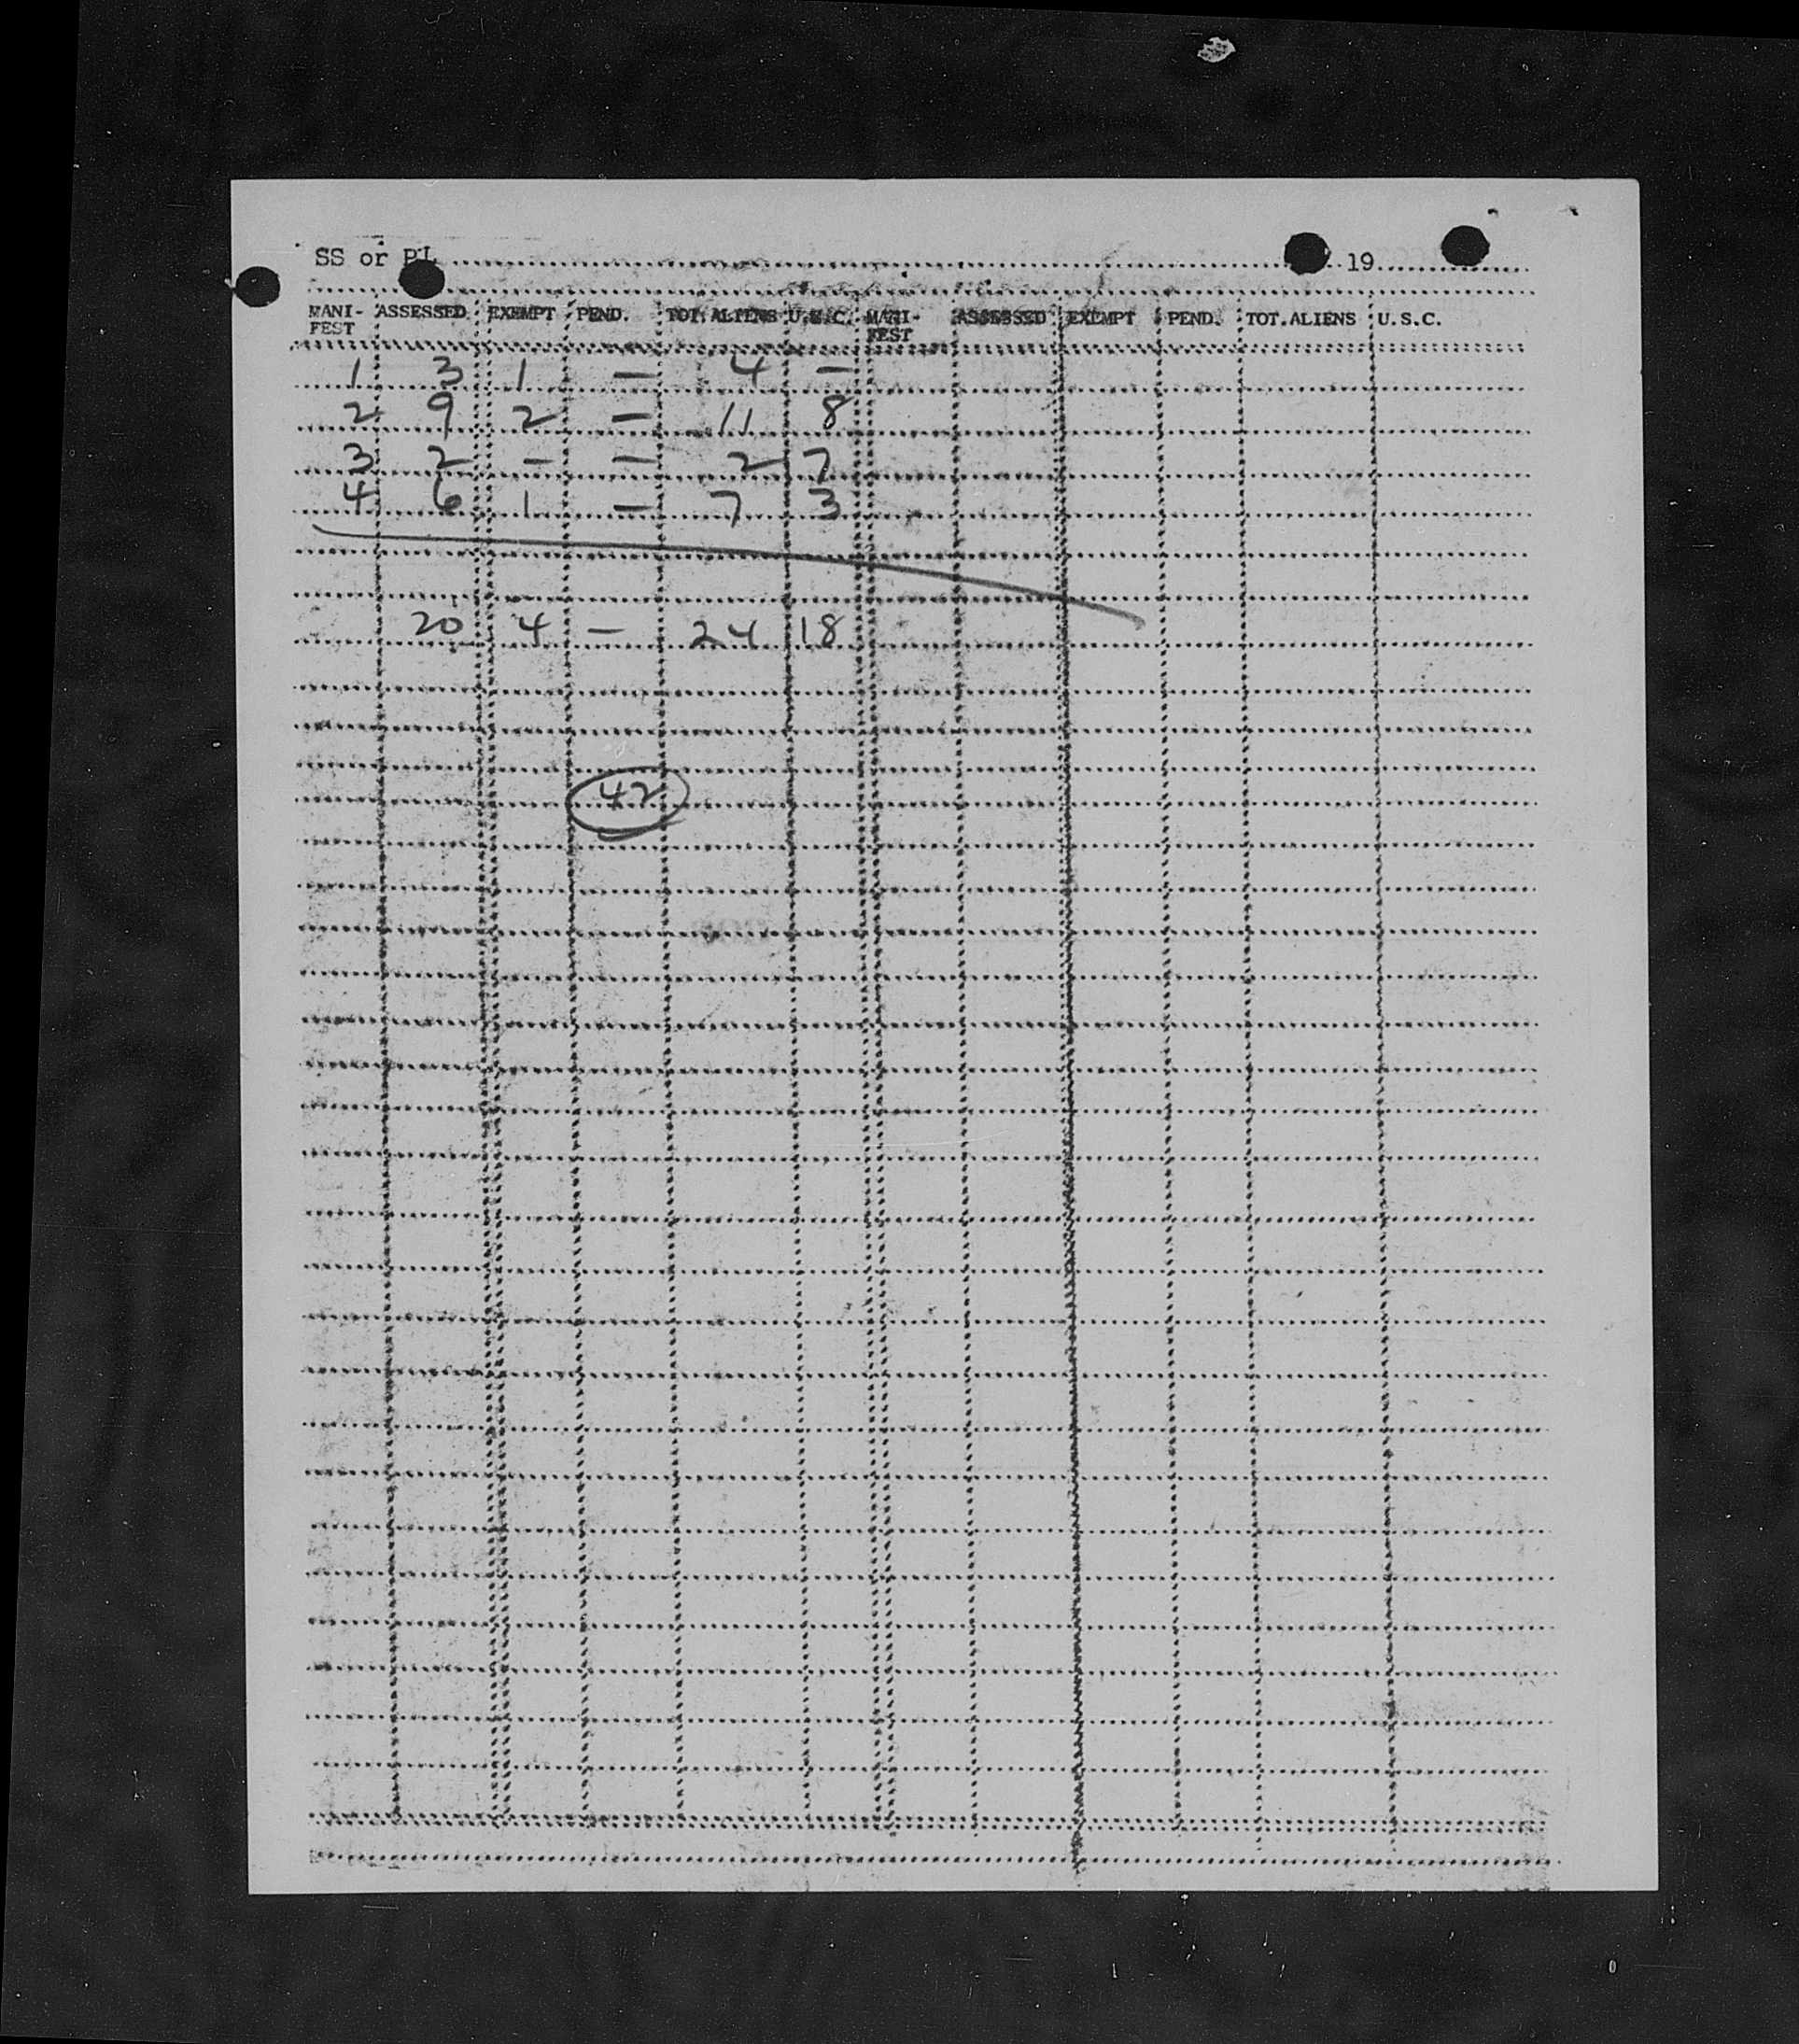 SS or PL 19
MANI- ASSESSED EXEMPT PEND. TOT. ALIENS U.S.C. MANI- ASSESSED EXEMPT PEND. TOT.ALIENS U.S.C.
FEST FEST
1 3 1 — 4 —
2 9 2 — 11 8
3 2 — — 2 7
4 6 1 — 7 3
20 4 — 24 18
42